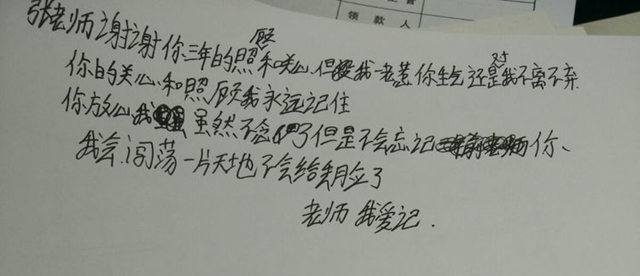 领款人
张老师谢谢你三年的照顾和关心.但我一老惹你生气还是对我不离不弃
你的关心和照顾我永远记住
你放心我虽然不念了但是不会忘记你、
我会闯荡一片天地不会给丢脸了
老师我爱记.